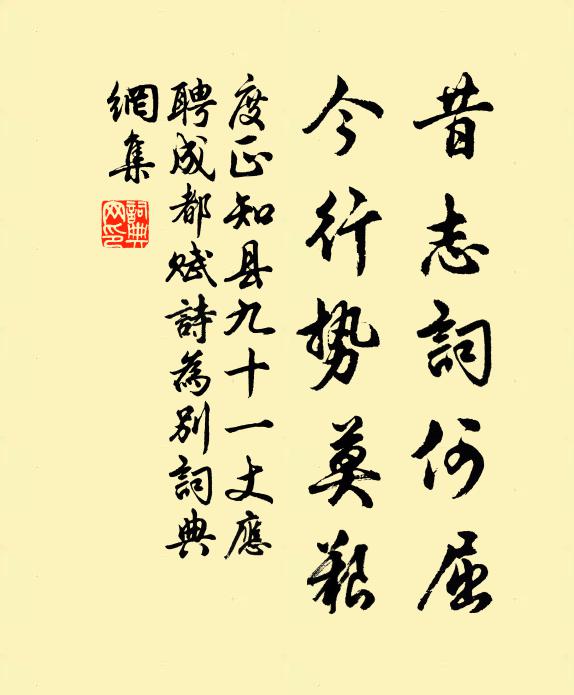 昔志詞何屈
今行勢莫艱
度正知县九十一丈應
聘成都赋詩為別詞典
網集
詞典
网印